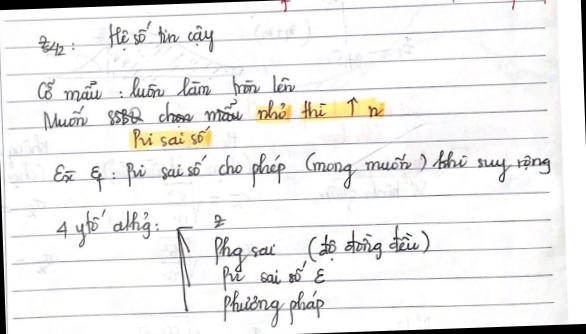 z α/2 : Hệ số tin cậy
Cỡ mẫu : luôn làm tròn lên
Muốn nhỏ thì ↑ n
sai số
εx̄ εf : sai số cho phép (mong muốn) khi suy rộng
4 ytố ahg̉ : z
Phg sai (độ đồng đều)
sai số ε
Phương pháp